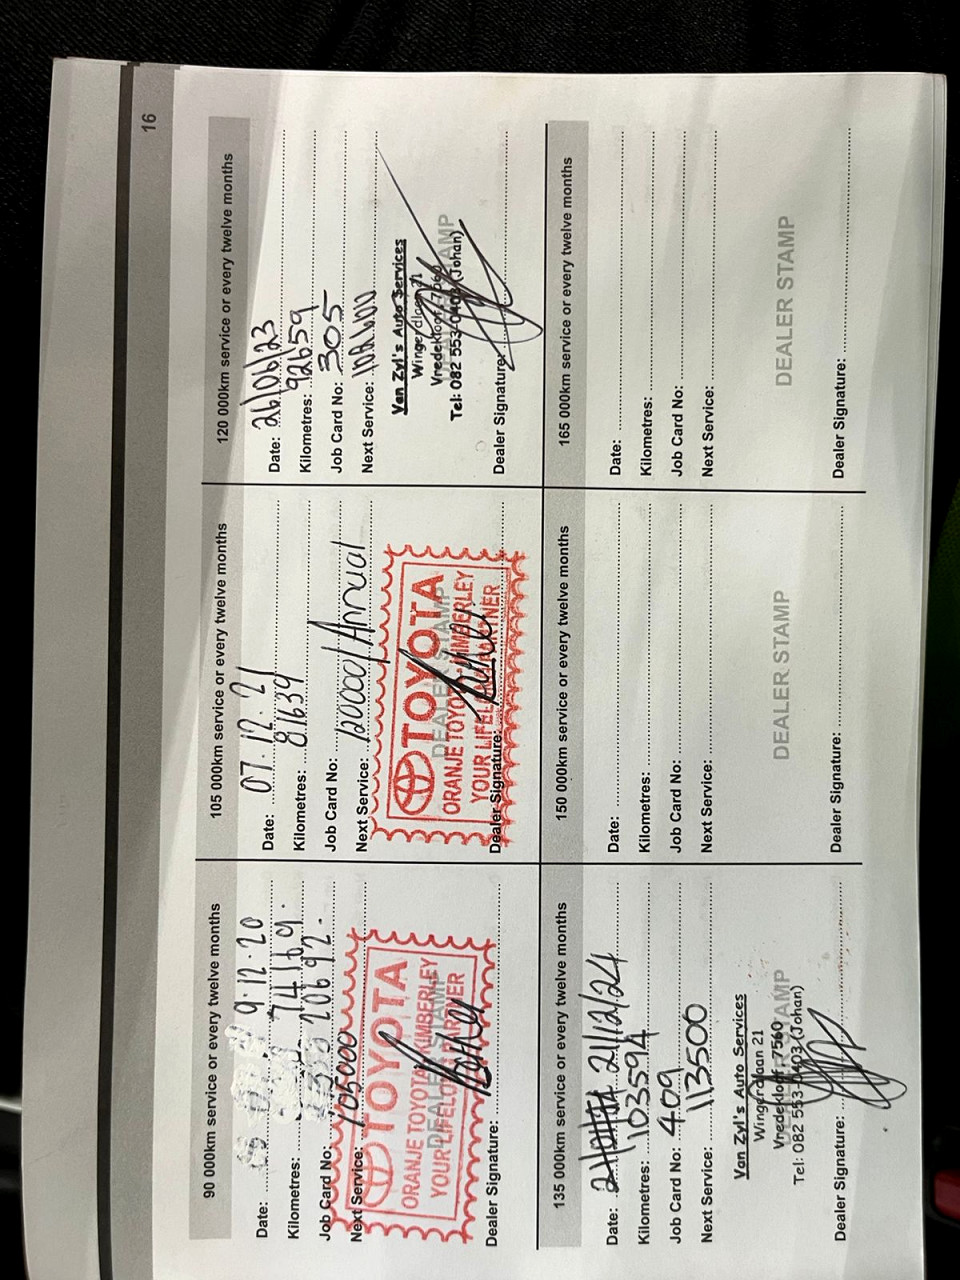 16
90 000km service or every twelve months
Date: 9.12.20
Kilometres: 74169.
Job Card No: 20692.
Next Service: 105000
TOYOTA
ORANJE TOYOTA KIMBERLEY
YOUR LIFELONG PARTNER
DEALER STAMP
Dealer Signature:
105 000km service or every twelve months
Date: 07.12.21
Kilometres: 81639
Job Card No:
Next Service: 120000/Annual
TOYOTA
DEALER STAMP
ORANJE TOYOTA KIMBERLEY
YOUR LIFELONG PARTNER
Dealer Signature:
120 000km service or every twelve months
Date: 26/06/23
Kilometres: 92659
Job Card No: 305
Next Service:
Van Zyl's Auto Services
Wingerdlaan 21
Vredekloof 7560
DEALER STAMP
Tel: 082 553-0403 (Johan)
Dealer Signature:
135 000km service or every twelve months
Date: 21/12/24
Kilometres: 103594
Job Card No: 409
Next Service: 113500
Van Zyl's Auto Services
Wingerdlaan 21
Vredekloof 7560
DEALER STAMP
Tel: 082 553-0403 (Johan)
Dealer Signature:
150 000km service or every twelve months
Date:
Kilometres:
Job Card No:
Next Service:
DEALER STAMP
Dealer Signature:
165 000km service or every twelve months
Date:
Kilometres:
Job Card No:
Next Service:
DEALER STAMP
Dealer Signature: